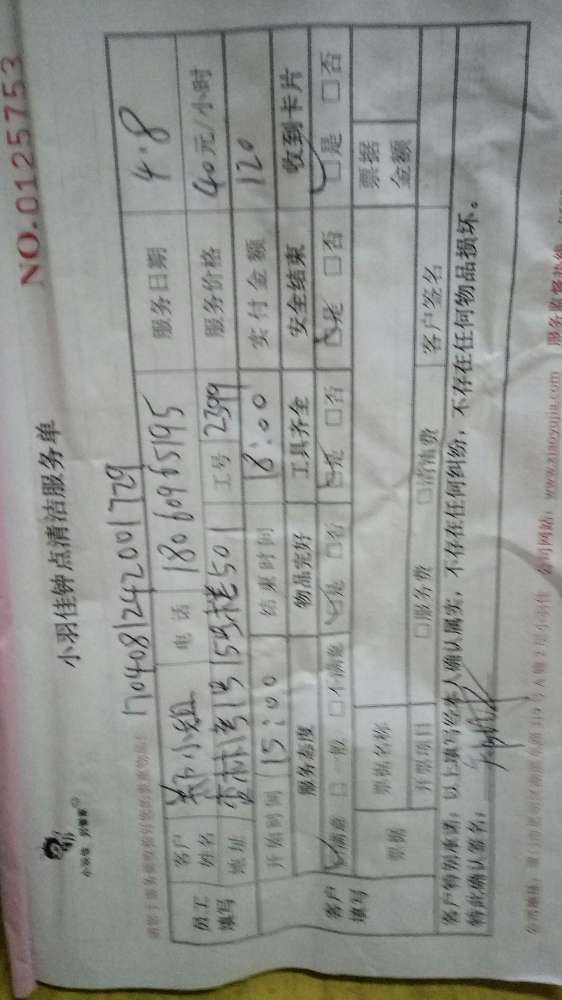 NO.0125753
小羽佳钟点清洁服务单
1704081242001729
员工填写 客户姓名 郑小姐 电话 18060905195 服务日期 4.8
地址 杏林湾1号15号楼501 工号 2399 服务价格 40元/小时
开始时间 15:00 结束时间 18:00 实付金额 120
客户填写 服务态度 物品完好 工具齐全 安全结束 收到卡片
☑满意 □一般 □不满意 ☑是 □否 ☑是 □否 ☑是 □否 ☑是 □否
票据 票据名称 票据金额
开票项目 □服务费 □清洁费 客户签名
客户特别承诺：以上填写经本人确认属实，不存在任何纠纷，不存在任何物品损坏。
特此确认签名：
公司网站：www.xiaoyujia.com 服务监督热线